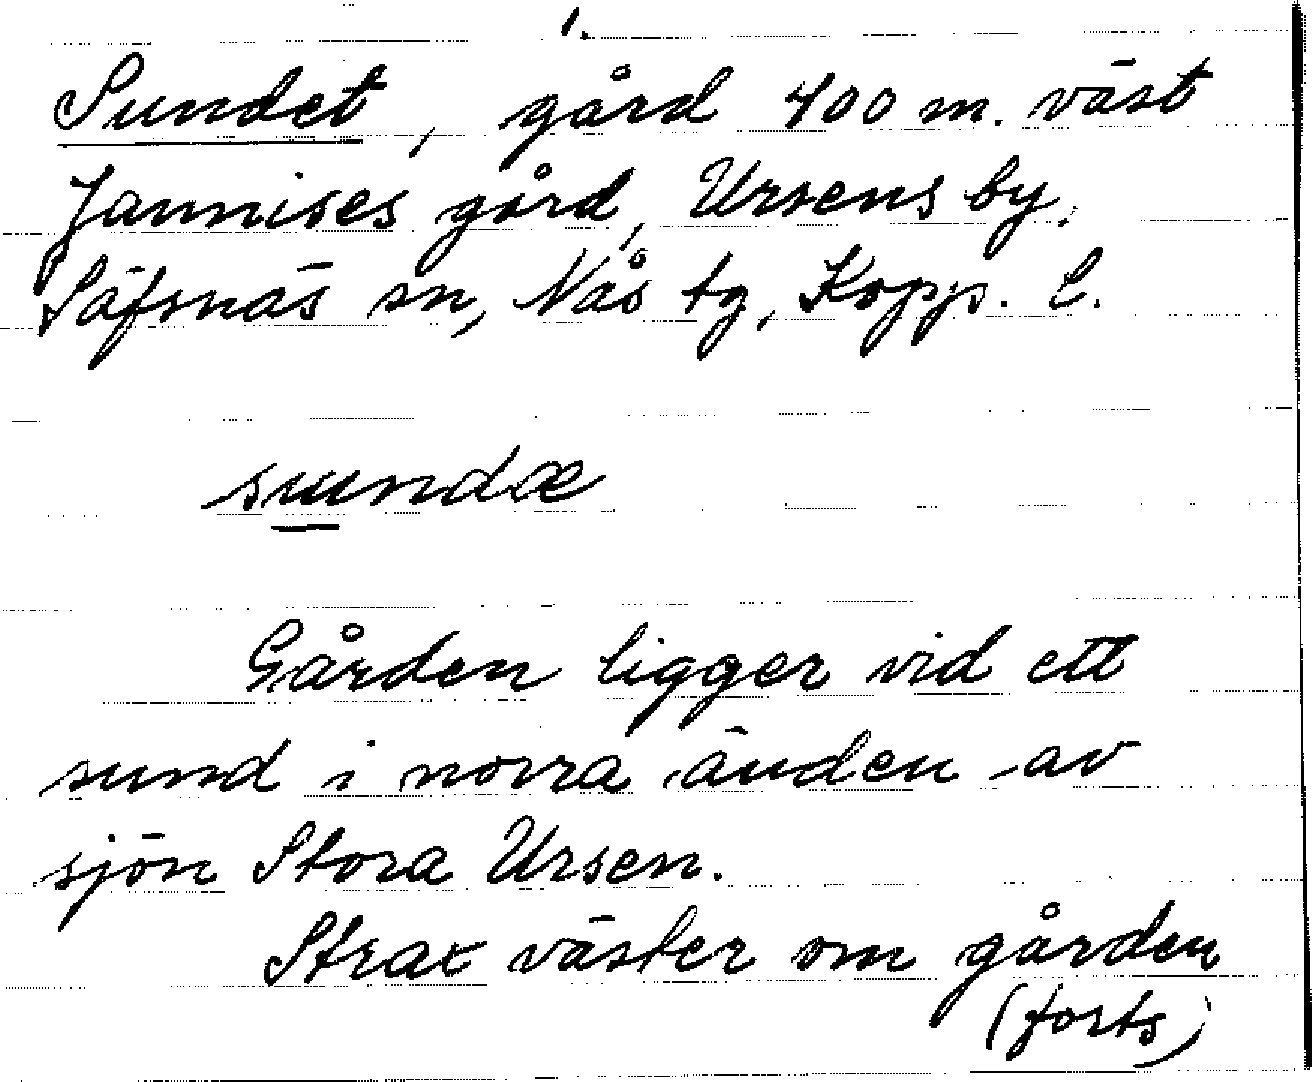 1.
Sundet, gård 400 m. väst
Jannises gård, Ursens by,
Säfsnäs sn, Nås tg, Kopp. l.
suundæ
Gården ligger vid ett
sund i norra änden av
sjön Stora Ursen.
Strax väster om gården
(forts)